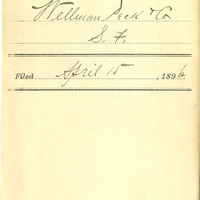 Wellman Peck & Co
S. F.
Filed April 15, 1896